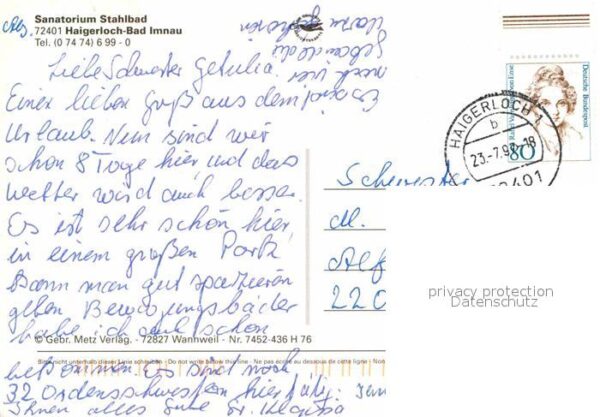 Sanatorium Stahlbad
72401 Haigerloch-Bad Imnau
Tel. (0 74 74) 6 99 - 0
Liebe Schwester Getulia.
Einen lieben Gruß aus dem
Urlaub. Nun sind wir
schon 8 Tage hier und das
Wetter wird auch besser.
Es ist sehr schön hier,
in einem großen Park
kann man gut spazieren
gehen. Bewegungsbäder
habe ich auch schon
© Gebr. Metz Verlag. - 72827 Wannweil - Nr. 7452-436 H 76
Bitte nicht unterhalb dieser Linie schreiben - Do not write below this line - Ne pas écrire au dessous de cette ligne - Non
bekommen. Es sind noch
32 Ordensschwestern hier
Ihnen alles Gute
Deutsche Bundespost
80
HAIGERLOCH 1
b
23.-7.9
-18
Schwester
M.
Alf
220
privacy protection
Datenschutz